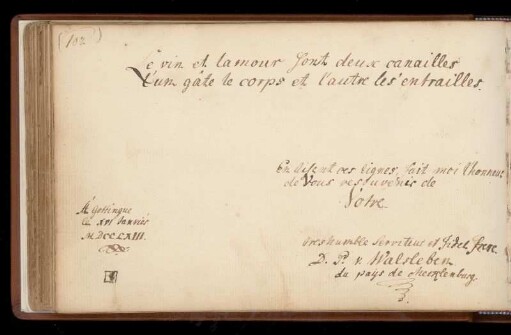 (102)
Le vin et lamour sont deux canailles
L'un gâte le corps et l'autre les entrailles.
En lisent ces lignes, fait moi l'honneur
de Vous resouvenir de
Votre
A Gottingue
le XVI Janvier
MDCCLXIII.
treshumble Serviteur et fidel frere
D. P. v. Walsleben
du pays de Mecklenburg.